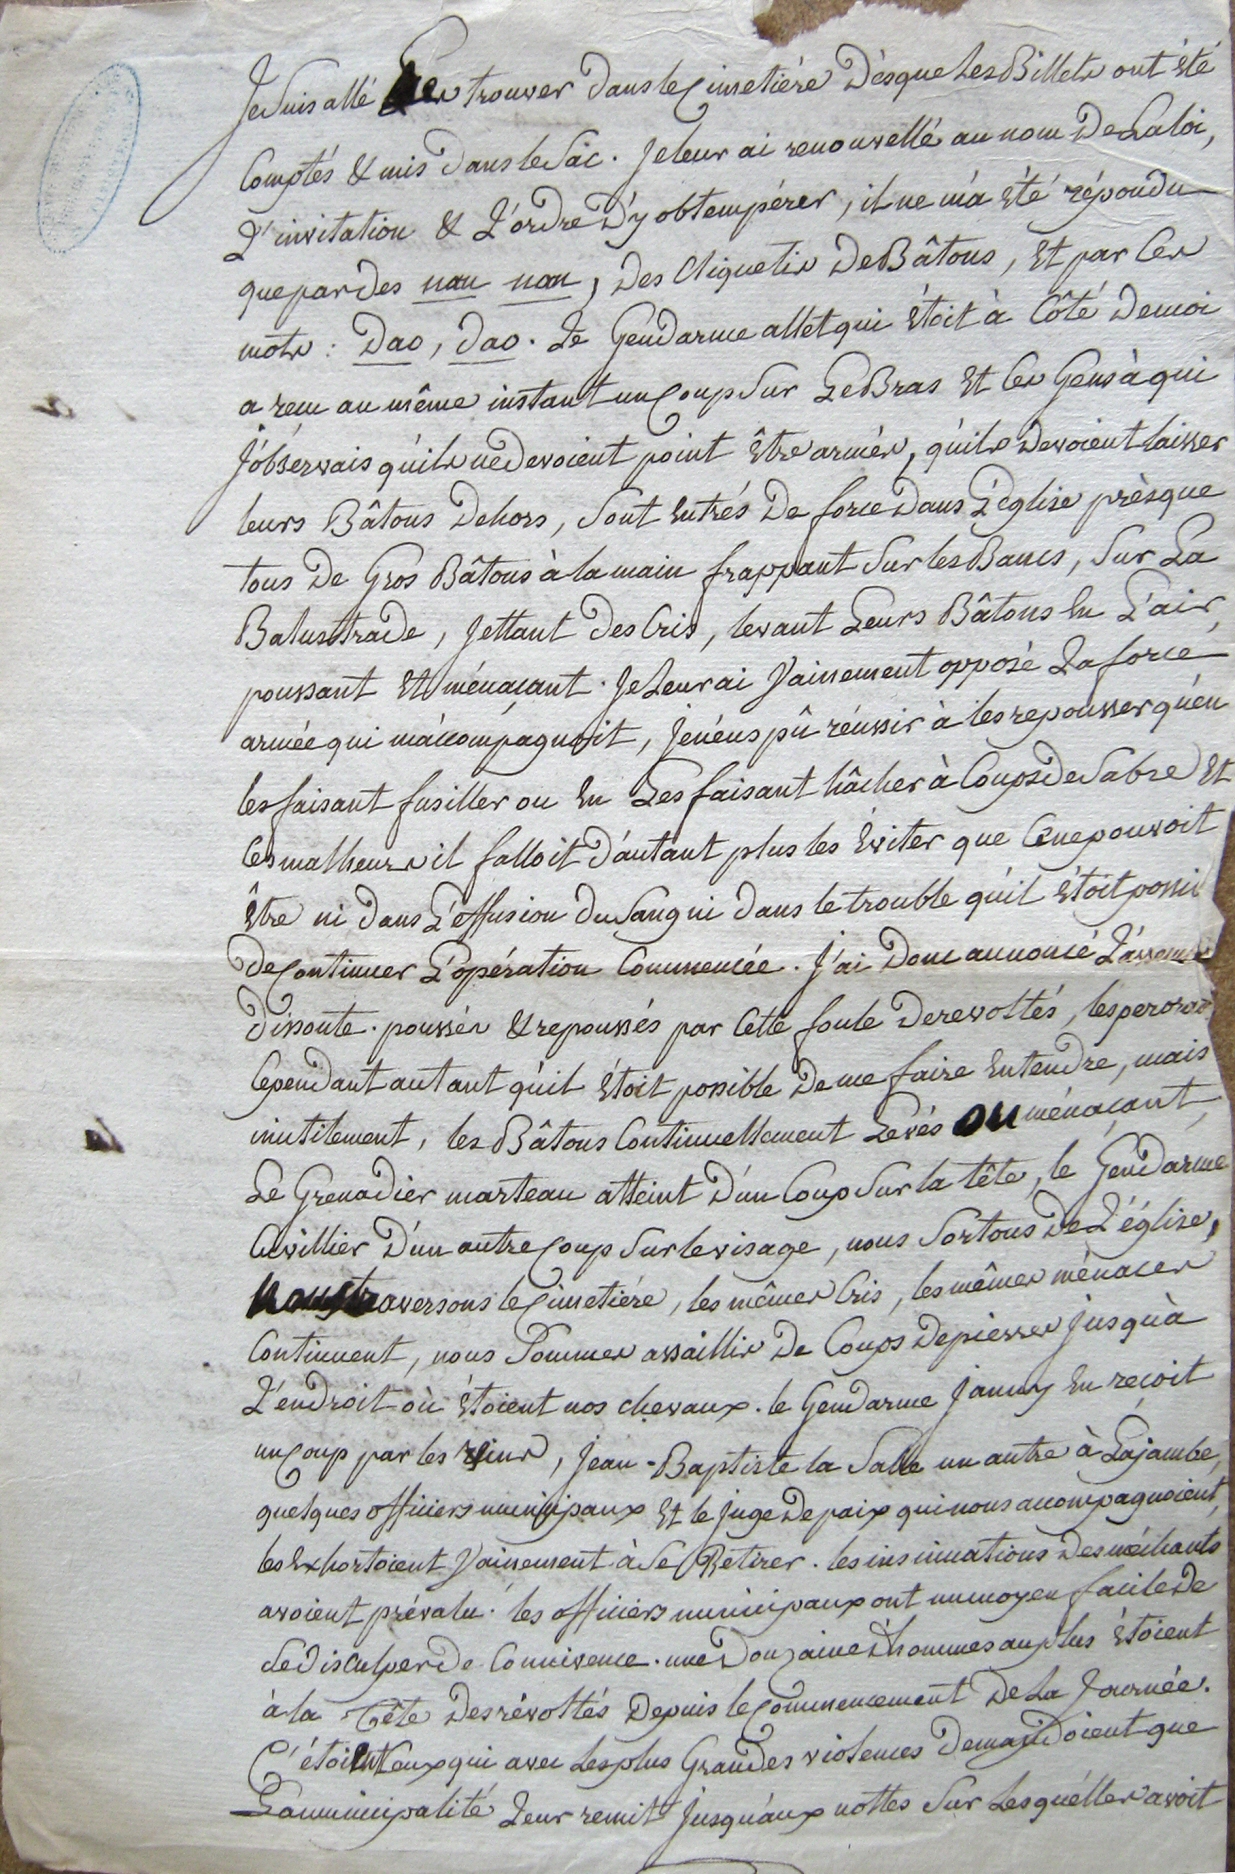 Je suis allé les trouver dans le Cimetiére Dès que les Billets ont été
Comptés & mis dans le Sac. Je leur ai renouvellé au nom De La loi,
L'invitation & L'ordre D'y obtempérer, il ne m'a été répondu
que par des non non, Des Cliquetis De Bâtons, Et par Ces
mots : Dao, Dao. Le Gendarme allet qui étoit à Côté De moi
a recu au même instant un Coup sur Le Bras Et Ces Gens à qui
J'observais qu'ils ne Devoient point être armés, qu'ils Devoient laisser
leurs Bâtons Dehors, sont Entrés De force Dans L'église présque
tous De Gros Bâtons à la main frappant sur les Bancs, sur La
Balustrade, Jettant Des Cris, levant Leurs Bâtons En L'air,
poussant Et ménaçant. Je Leur ai Vainement opposé La force
armée qui m'accompagnoit, Je n'eus pû réussir à les repousser qu'en
les faisant fusiller ou En Les faisant hâcher à Coups de Sabre Et
Ces malheurs il falloit D'autant plus les Eviter que Ce ne pouvoit
Être ni Dans L'effusion Du Sang ni Dans le trouble qu'il Étoit possi
De Continuer L'opération Commencée. J'ai Donc annoncé L'assem
Dissoute. poussés & repoussés par Cette foule De revoltés, les perorao
Cependant autant qu'il Étoit possible De me faire Entendre, mais
inutilement, les Bâtons Continuellement Levés ou ménaçant,
Le Grenadier marteau atteint D'un Coup Sur la tête, le Gendarme
Cuvillier D'un autre Coup Sur le visage, nous Sortons De L'église,
Nous traversons le Cimetiére, les mêmes Cris, les mêmes ménaces
Continuent, nous Sommes assaillis De Coups De pierres Jusqu'à
L'endroit où Étoient nos chevaux. le Gendarme Janny En reçoit
un Coup par les reins, Jean-Baptiste la Salle un autre à La jambe,
quelques officiers municipaux Et le Juge De paix qui nous accompagnoient,
les Exhortoient Vainement à Se Retirer. les insinuations Des méchants
avoient prévalu. les officiers municipaux ont un moyen facile De
Se Disculper De Connivence. une Douzaine D'hommes au plus Étoient
à la Tête Des révoltés Depuis le Commencement De La Journée.
C'étoient Ceux qui avec Les plus Grandes violences Demandoient que
La municipalité Leur remit Jusqu'aux nottes Sur Lesquélles avoit